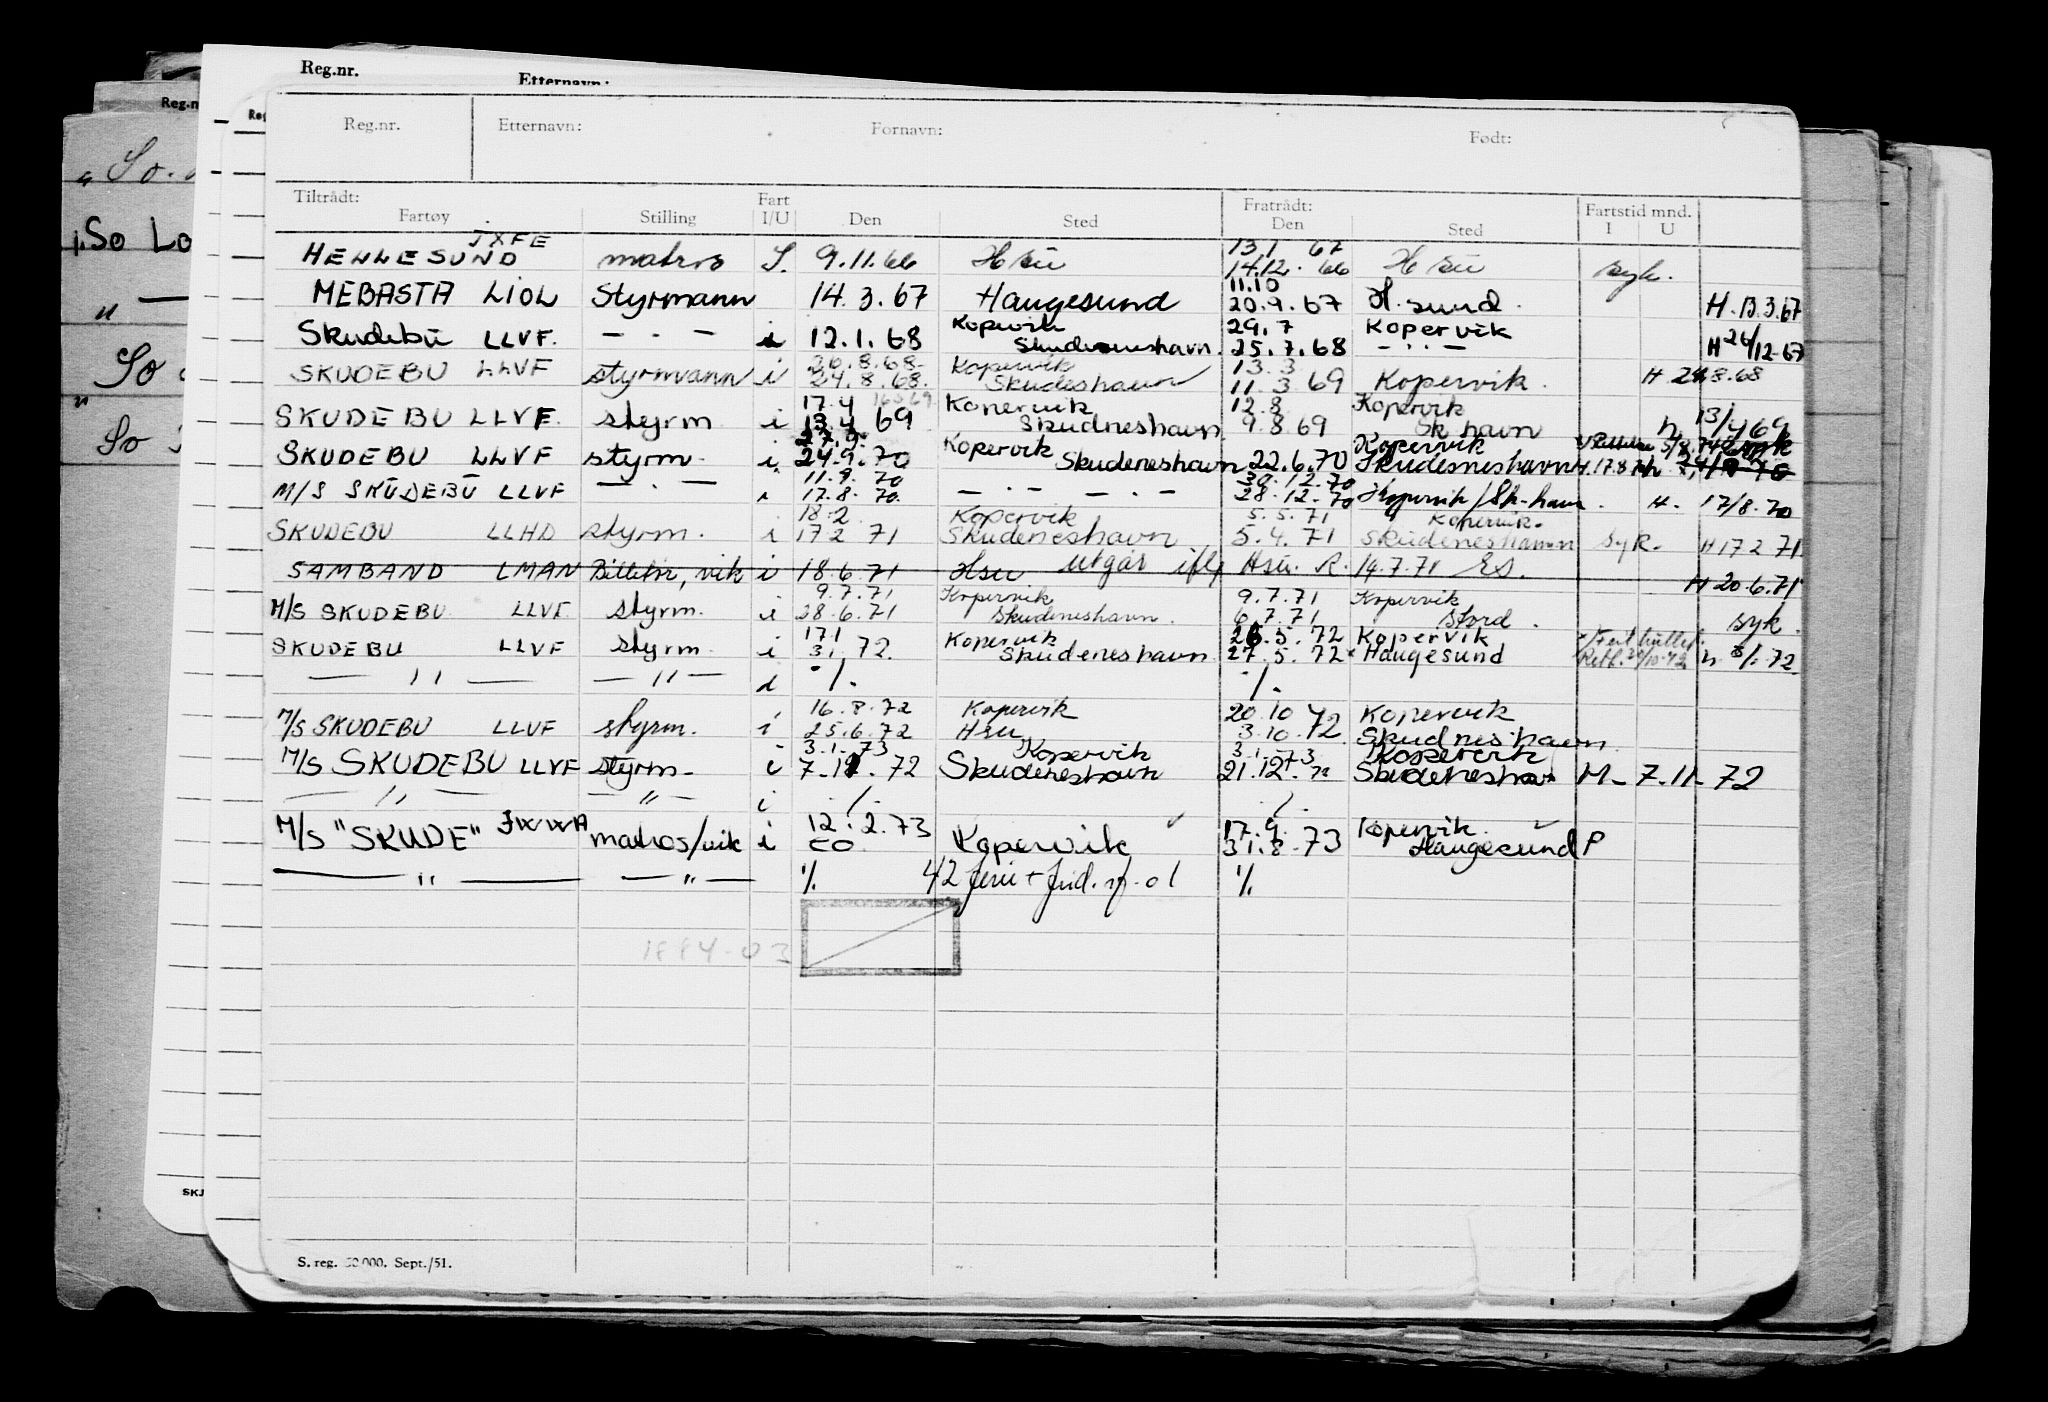 Reg.nr. Etternavn:
Reg.nr. Etternavn: Fornavn: Født:
Tiltrådt: Fartøy Stilling Fart I/U Den Sted Fratrådt: Den Sted Fartstid mnd. I U
JXFE 13.1 67
HELLESUND matros 9.11.66 H su 14.12.66 H su syk.
11.10
MEBASTA LIOL Styrmann 14.3.67 Haugesund 20.9.67 H.sund. H.13.3.67
Kopervik 29.7 Kopervik
Skudebu LLVF. — . — i 12.1.68 Skudeneshavn. 25.7.68 — . . — H 26/12-67
26.8.68 Kopervik 13.3
SKUDEBU LLVF styrmann i 24.8.68. Skudeshavn 11.3 69 Kopervik. H 24.8.68
17.4 Kopervik 12.8 Kopervik
SKUDEBU LLVF styrm i 13.4 69 Skudneshavn 9.8.69 Sk havn h. 13/4 69
27.9. Kopervik Kopervik
SKUDEBU LLVF styrm. i. 24.9.70 Skudeneshavn 22.6.70 Skudesneshavn
11.9.70 30.12.70
M/S SKUDEBU LLVF — . — i 17.8.70. — . — — . — 28.12.70 Kopervik/Sk-havn. H. 17/8.70
18.2 Kopervik 5.5.71 Kopervik.
SKUDEBU LLHD styrm. i 17 2 71 Skudeneshavn 5.4.71 Skudeneshavn syk. H 17 2 71
SAMBAND LMAN Billettør, vik i 18.6.71 Hsu utgår Hsu. R. 14.7.71 H 20.6.71
9.7.71 Kopervik 9.7.71 Kopervik
M/S SKUDEBU LLVF styrm. i 28.6.71 Skudeneshavn. 6.7.71 Stord syk.
17 1 Kopervik 26.5.72 Kopervik
SKUDEBU LLVF styrm. i 3 1. 72. Skudeneshavn 27.5.72 Haugesund h. 3/1.72
— " — — " — i ./. ./.
16.8.72 Kopervik 20.10 Kopervik
M/S SKUDEBU LLVF styrm. i 25.6.72 Hsu 3.10.72 Skudneshavn
3.1.73 Kopervik 3.1.73 Kopervik
M/S SKUDEBU LLVF styrm. i 7.11.72 Skudeneshavn 21.12.72 Skudeneshavn H- 7.11-72
— " — — " — i ./. ./.
12.2.73 17.9. Kopervik.
M/S "SKUDE" JWWA matros/vik i co Kopervik 31.8.73 Haugesund P
— " — — " — ./. 42 ferie + frid. ./.
1884-03
S. reg. 50000. Sept./51.
Reg.n
So
So Lo
"
So
"
So
SKJ